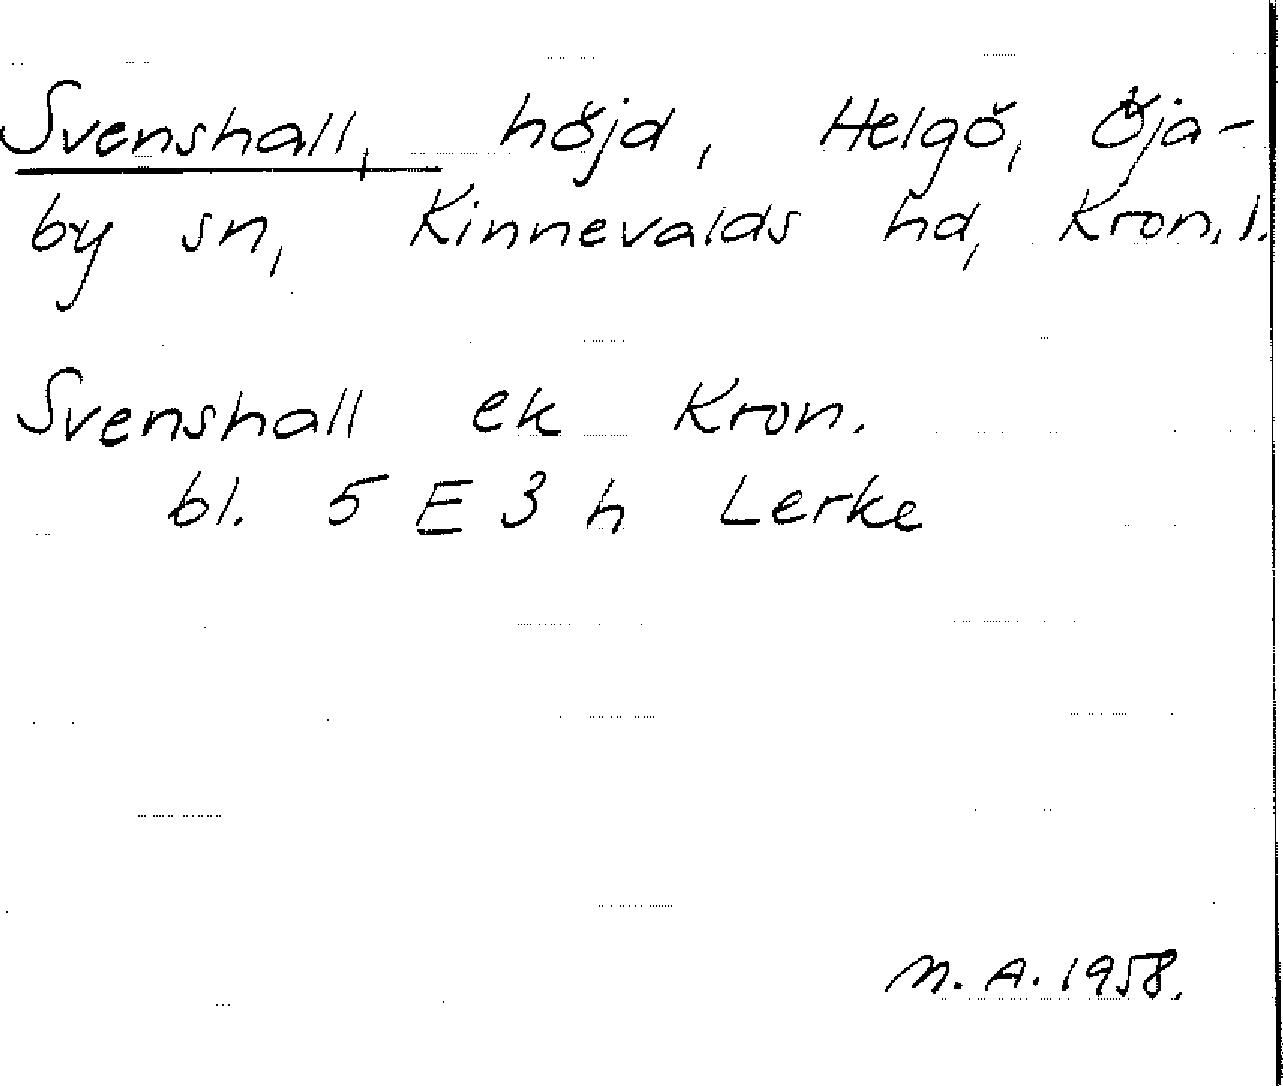 Svenshall, höjd, Helgö, Öja-
by sn, Kinnevalds hd, Kron. l.
Svenshall ek Kron.
bl. 5 E 3 h Lerke
M. A. 1958.